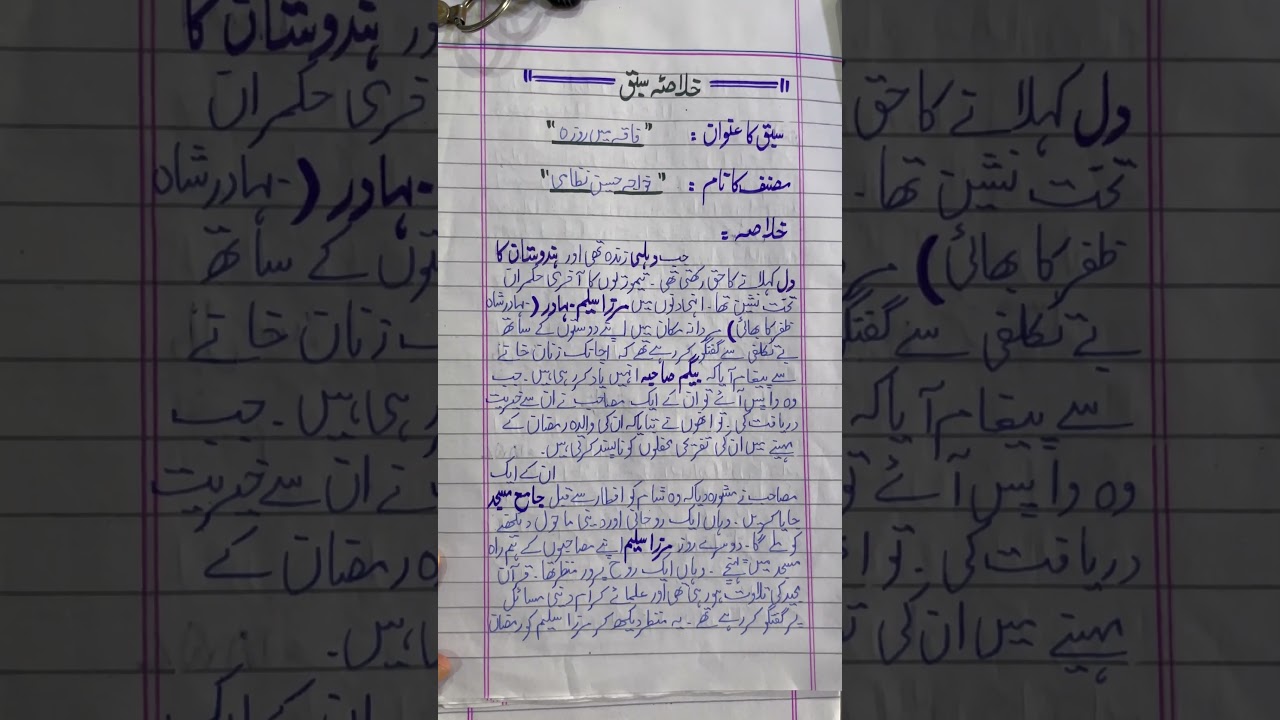 خلاصہ سبق
سبق کا عنوان : "فاقہ میں روزہ"
مصنف کا نام : "خواجہ حسن نظامی"
خلاصہ :
جب دہلی زندہ تھی اور ہندوستان کا
دل کہلانے کا حق رکھتی تھی۔ تیموریوں کا آخری حکمران
تخت نشین تھا۔ انہی دنوں میں مرزا سلیم بہادر (بہادر شاہ
ظفر کا بھائی) مردانہ مکان میں اپنے دوستوں کے ساتھ
بے تکلفی سے گفتگو کر رہے تھے کہ اچانک زنان خانے
سے پیغام آیا کہ بیگم صاحبہ انہیں یاد کر رہی ہیں۔ جب
وہ واپس آئے تو ان کے ایک مصاحب نے ان سے خیریت
دریافت کی۔ تو انھوں نے بتایا کہ ان کی والدہ رمضان کے
مہینے میں ان کی تفریحی محفلوں کو ناپسند کرتی ہیں۔
ان کے ایک
مصاحب نے مشورہ دیا کہ وہ شام کو افطار سے قبل جامع مسجد
جایا کریں۔ وہاں ایک روحانی اور دینی ماحول دیکھنے
کو ملے گا۔ دوسرے روز مرزا سلیم اپنے مصاحبوں کے ہم راہ
مسجد میں پہنچے۔ وہاں ایک روح پرور منظر تھا۔ قرآن
مجید کی تلاوت ہو رہی تھی اور علمائے کرام دینی مسائل
پر گفتگو کر رہے تھے۔ یہ منظر دیکھ کر مرزا سلیم کو رمضان